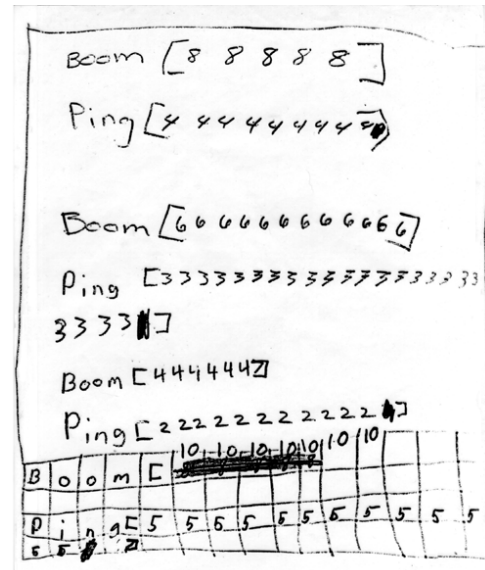 Boom [8 8 8 8 8]
Ping [4 4 4 4 4 4 4 4 4]
Boom [6 6 6 6 6 6 6 6 6 6 6 6]
Ping [3 3 3 3 3 3 3 3 3 3 3 3 3 3 3 3 3 3
3 3 3 3 ]
Boom [4 4 4 4 4 4 2]
Ping [2 2 2 2 2 2 2 2 2 2 2 ]
10 10 10 10 10 10 10
Boom [
Ping [ 5 5 5 5 5 5 5 5 5 5
5 5 ]